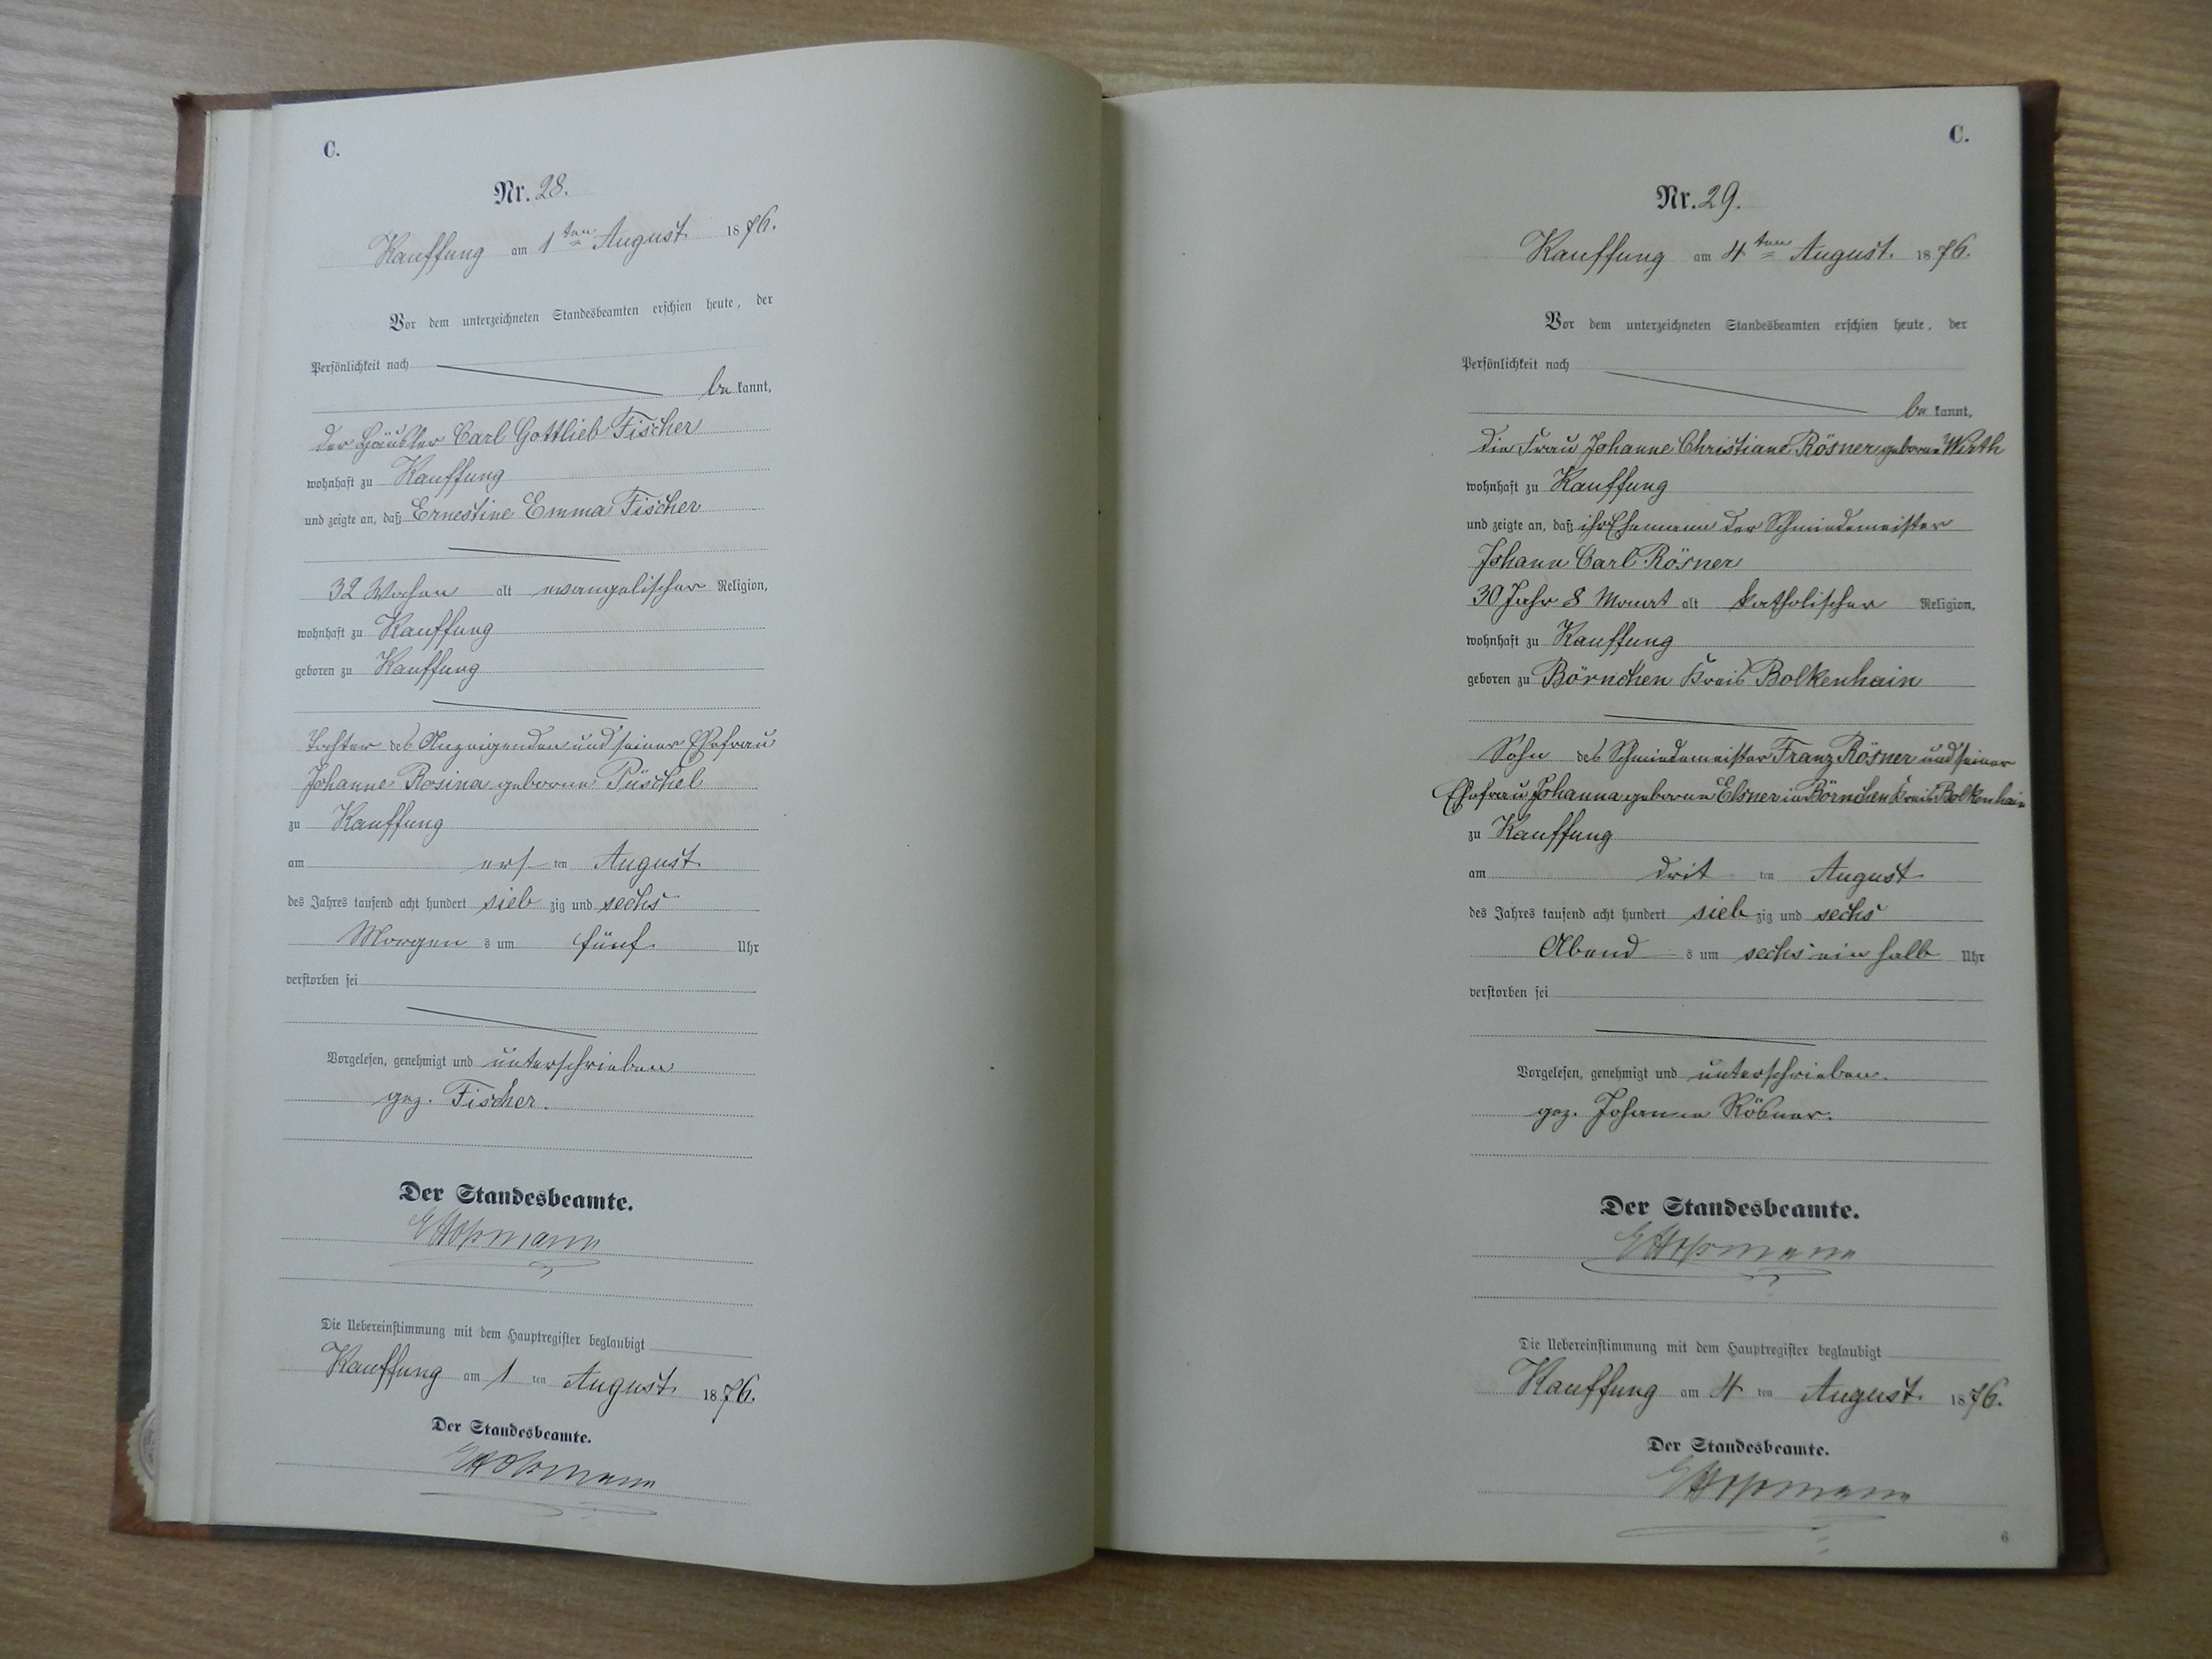 C.
Nr. 28.
Kauffung am 1ten August 1876.
Vor dem unterzeichneten Standesbeamten erschien heute, der
Persönlichkeit nach
be kannt,
der Häusler Carl Gottlieb Fischer
wohnhaft zu Kauffung
und zeigte an, daß Ernestine Emma Fischer
32 Wochen alt evangelischer Religion,
wohnhaft zu Kauffung
geboren zu Kauffung
Tochter des Anzeigenden und seiner Ehefrau
Johanne Rosina geborne Püschel
zu Kauffung
am ers ten August
des Jahres tausend acht hundert sieb zig und sechs
Morgen s um fünf Uhr
verstorben sei
Vorgelesen, genehmigt und unterschrieben
gez. Fischer.
Der Standesbeamte.
Die Uebereinstimmung mit dem Hauptregister beglaubigt
Kauffung am 1 ten August 1876.
Der Standesbeamte.
C.
Nr. 29.
Kauffung am 4ten August. 1876.
Vor dem unterzeichneten Standesbeamten erschien heute, der
Persönlichkeit nach
be kannt,
die Frau Johanne Christiane Rösner geborne Wirth
wohnhaft zu Kauffung
und zeigte an, daß ihr Ehemann der Schmiedemeister
Johann Carl Rösner
30 Jahr 8 Monat alt katholischer Religion,
wohnhaft zu Kauffung
geboren zu Börnchen Kreis Bolkenhain
Sohn des Schmiedemeister Franz Rösner und seiner
Ehefrau Johanna geborne Elsner in Börnchen Kreis Bolkenhain
zu Kauffung
am drit ten August
des Jahres tausend acht hundert sieb zig und sechs
Abend s um sechs ein halb Uhr
verstorben sei
Vorgelesen, genehmigt und unterschrieben.
gez. Johanne Rösner.
Der Standesbeamte.
Die Uebereinstimmung mit dem Hauptregister beglaubigt
Kauffung am 4 ten August. 1876.
Der Standesbeamte.
6